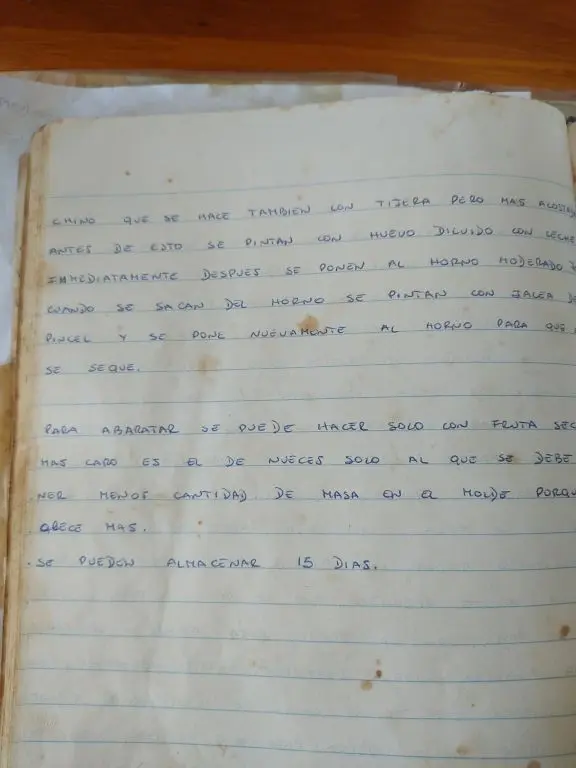 CHINO QUE SE HACE TAMBIEN CON TIJERA PERO MAS ACOSTAD
ANTES DE ESTO SE PINTAN CON HUEVO DILUIDO CON LECHE
IMMEDIATAMENTE DESPUES SE PONEN AL HORNO MODERADO
CUANDO SE SACAN DEL HORNO SE PINTAN CON JALEA DE
PINCEL Y SE PONE NUEVAMENTE AL HORNO PARA QUE
SE SEQUE.
PARA ABARATAR SE PUEDE HACER SOLO CON FRUTA SEC
MAS CARO ES EL DE NUECES SOLO AL QUE SE DEBE
NER MENOS CANTIDAD DE MASA EN EL MOLDE PORQU
CRECE MAS.
SE PUEDEN ALMACENAR 15 DIAS.